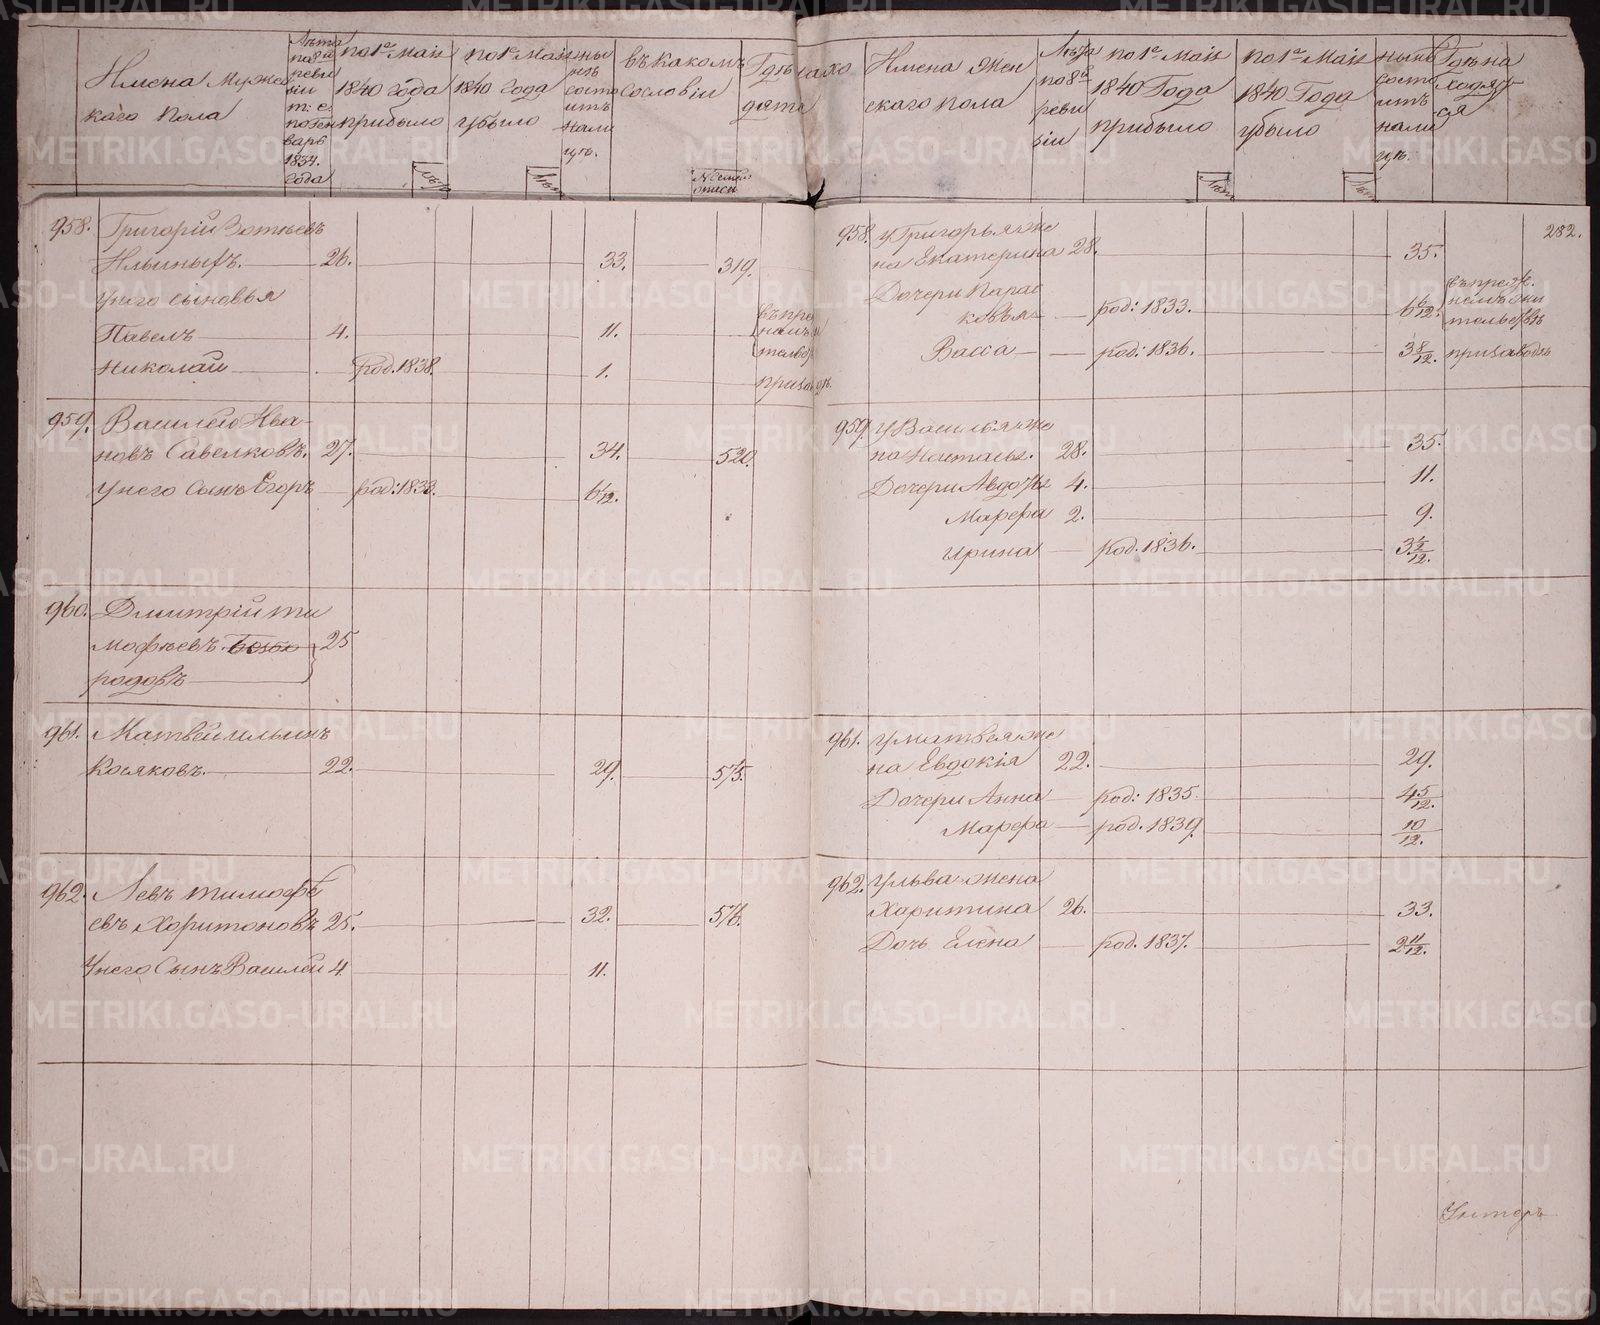 Имена Мужес
каго пола
Лѣта
по 8й
реви
зіи
т: е:
по Ген
варь
1834.
года
по 1е Маія
1840 года
прибыло
Лѣт
по 1е Маія
1840 года
убыло
Лѣт
ны
нѣ
состо
итъ
нали
цъ.
въ какомъ
сословіи
№ семей
описи
Гдѣ нахо
дятс
958. Григорій Зотѣевъ
Ильиныхъ. 26. 33. 319.
у него сыновья
Павелъ 4. 11.
Николай род. 1838. 1.
959. Василей Ива
новъ Савелковъ. 27. 34. 520.
у него Сынъ Егоръ род: 1838. 6/12.
960. Дмитрій Ти
мофѣевъ 25
родовъ
961. Матвей ильинъ
Косяковъ. 22. 29. 575.
962. Левъ тимофе
евъ Харитоновъ 25. 32. 576.
У него Сынъ Василей 4 11.
Имена Жен
скаго пола
Лѣта
по 8й
реви
зіи
по 1е Маія
1840 Года
прибыло
Лѣт
по 1е Маія
1840 Года
убыло
Лѣт
нынѣ
состо
итъ
нали
цъ.
Гдѣ на
ходят
ся
282.
958. у Григорья же
на Екатерина 28. 35.
Дочери Парас
ковья род: 1833. 6 6/12.
Васса род: 1836. 3 8/12.
959. у Василья же
на Наталья. 28. 35.
Дочери Авдотья 4. 11.
Марфа 2. 9.
Ирина род. 1836. 3 5/12.
961. у матвея же
на Евдокія 22. 29.
Дочери Анна род: 1835. 4 5/12.
Марфа род. 1839. 10/12.
962. у льва жена
Харитина 26. 33.
Дочь Елена род. 1837. 2 11/12.
Унтеръ